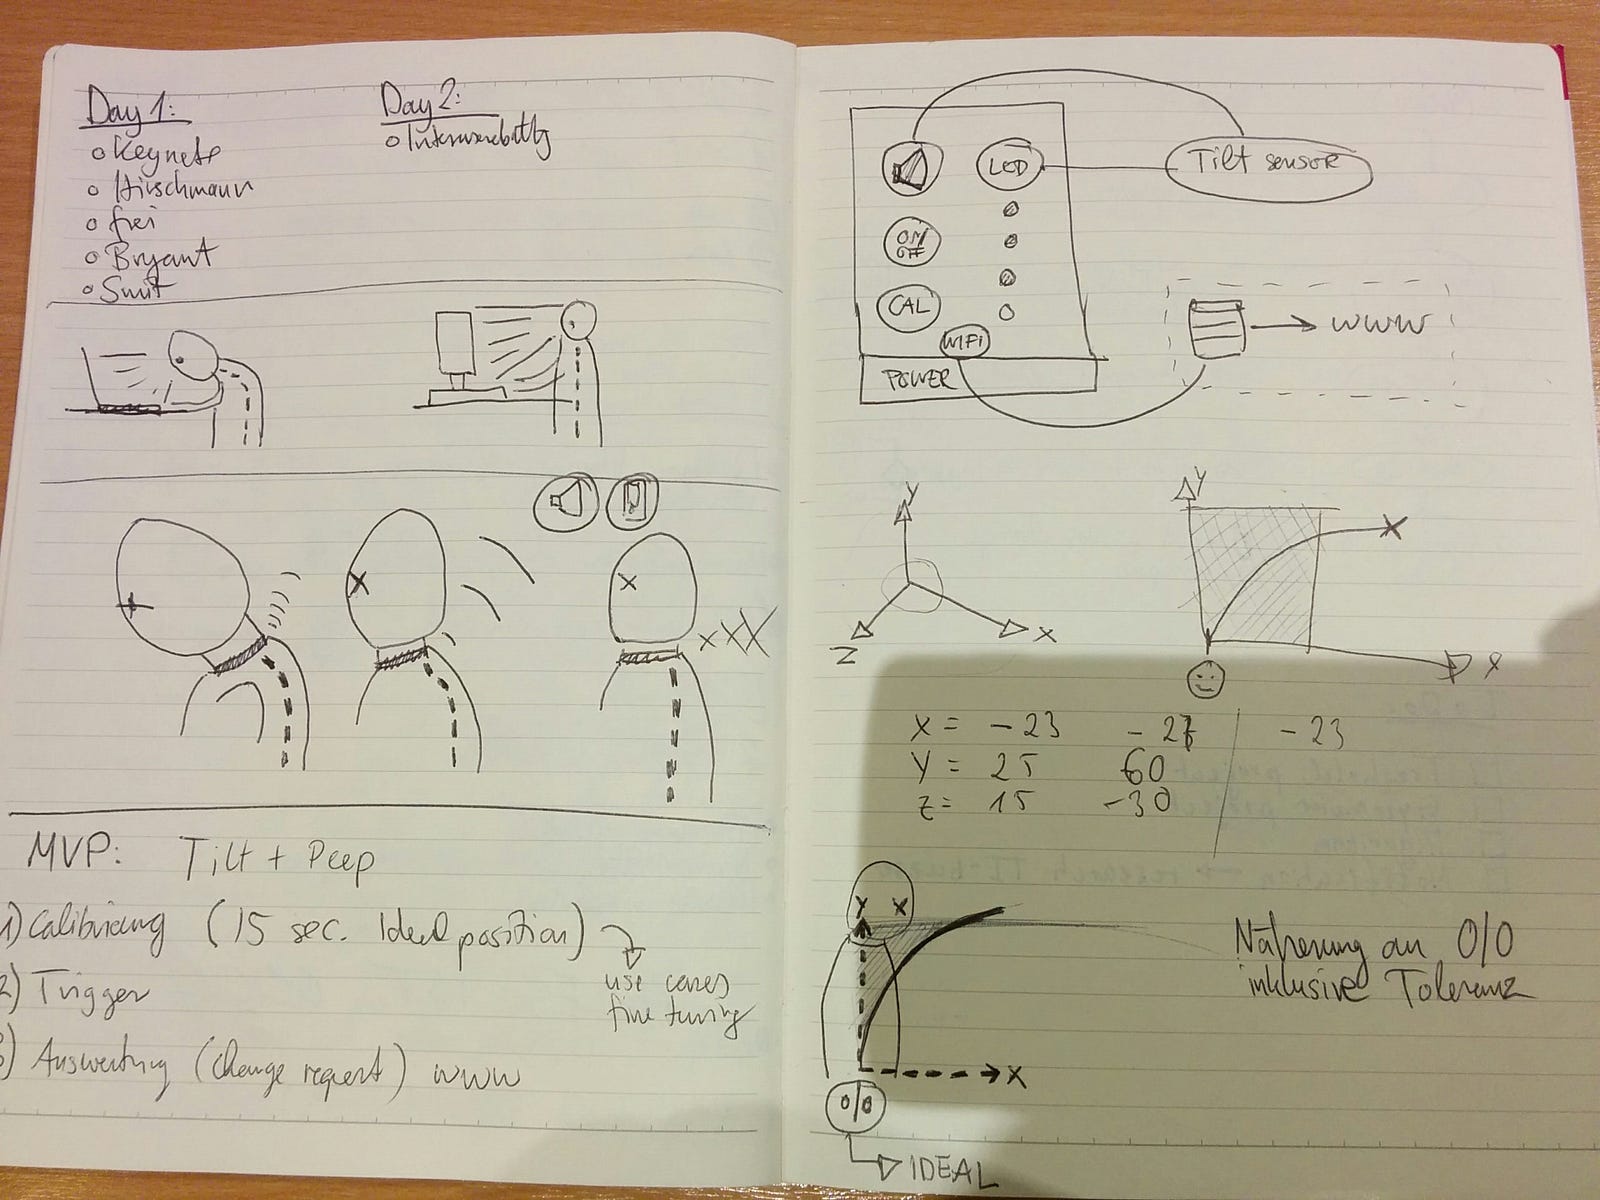 Day 1:
o Keynote
o Hirschmann
o frei
o Bryant
o Smit
Day 2:
MVP: Tilt + Peep
1) Calibrierung (15 sec. Ideal position)
use cases
fine tuning
2) Trigger
3) Auswertung (Change request) www
LED
Tilt sensor
ON
OFF
CAL
WiFi
POWER
www
Y
X
Z
Y
X
X
X = -23 -23
Y = 25 60
Z = 15 -30
X
0/0
IDEAL
Näherung an 0/0
inklusive Toleranz